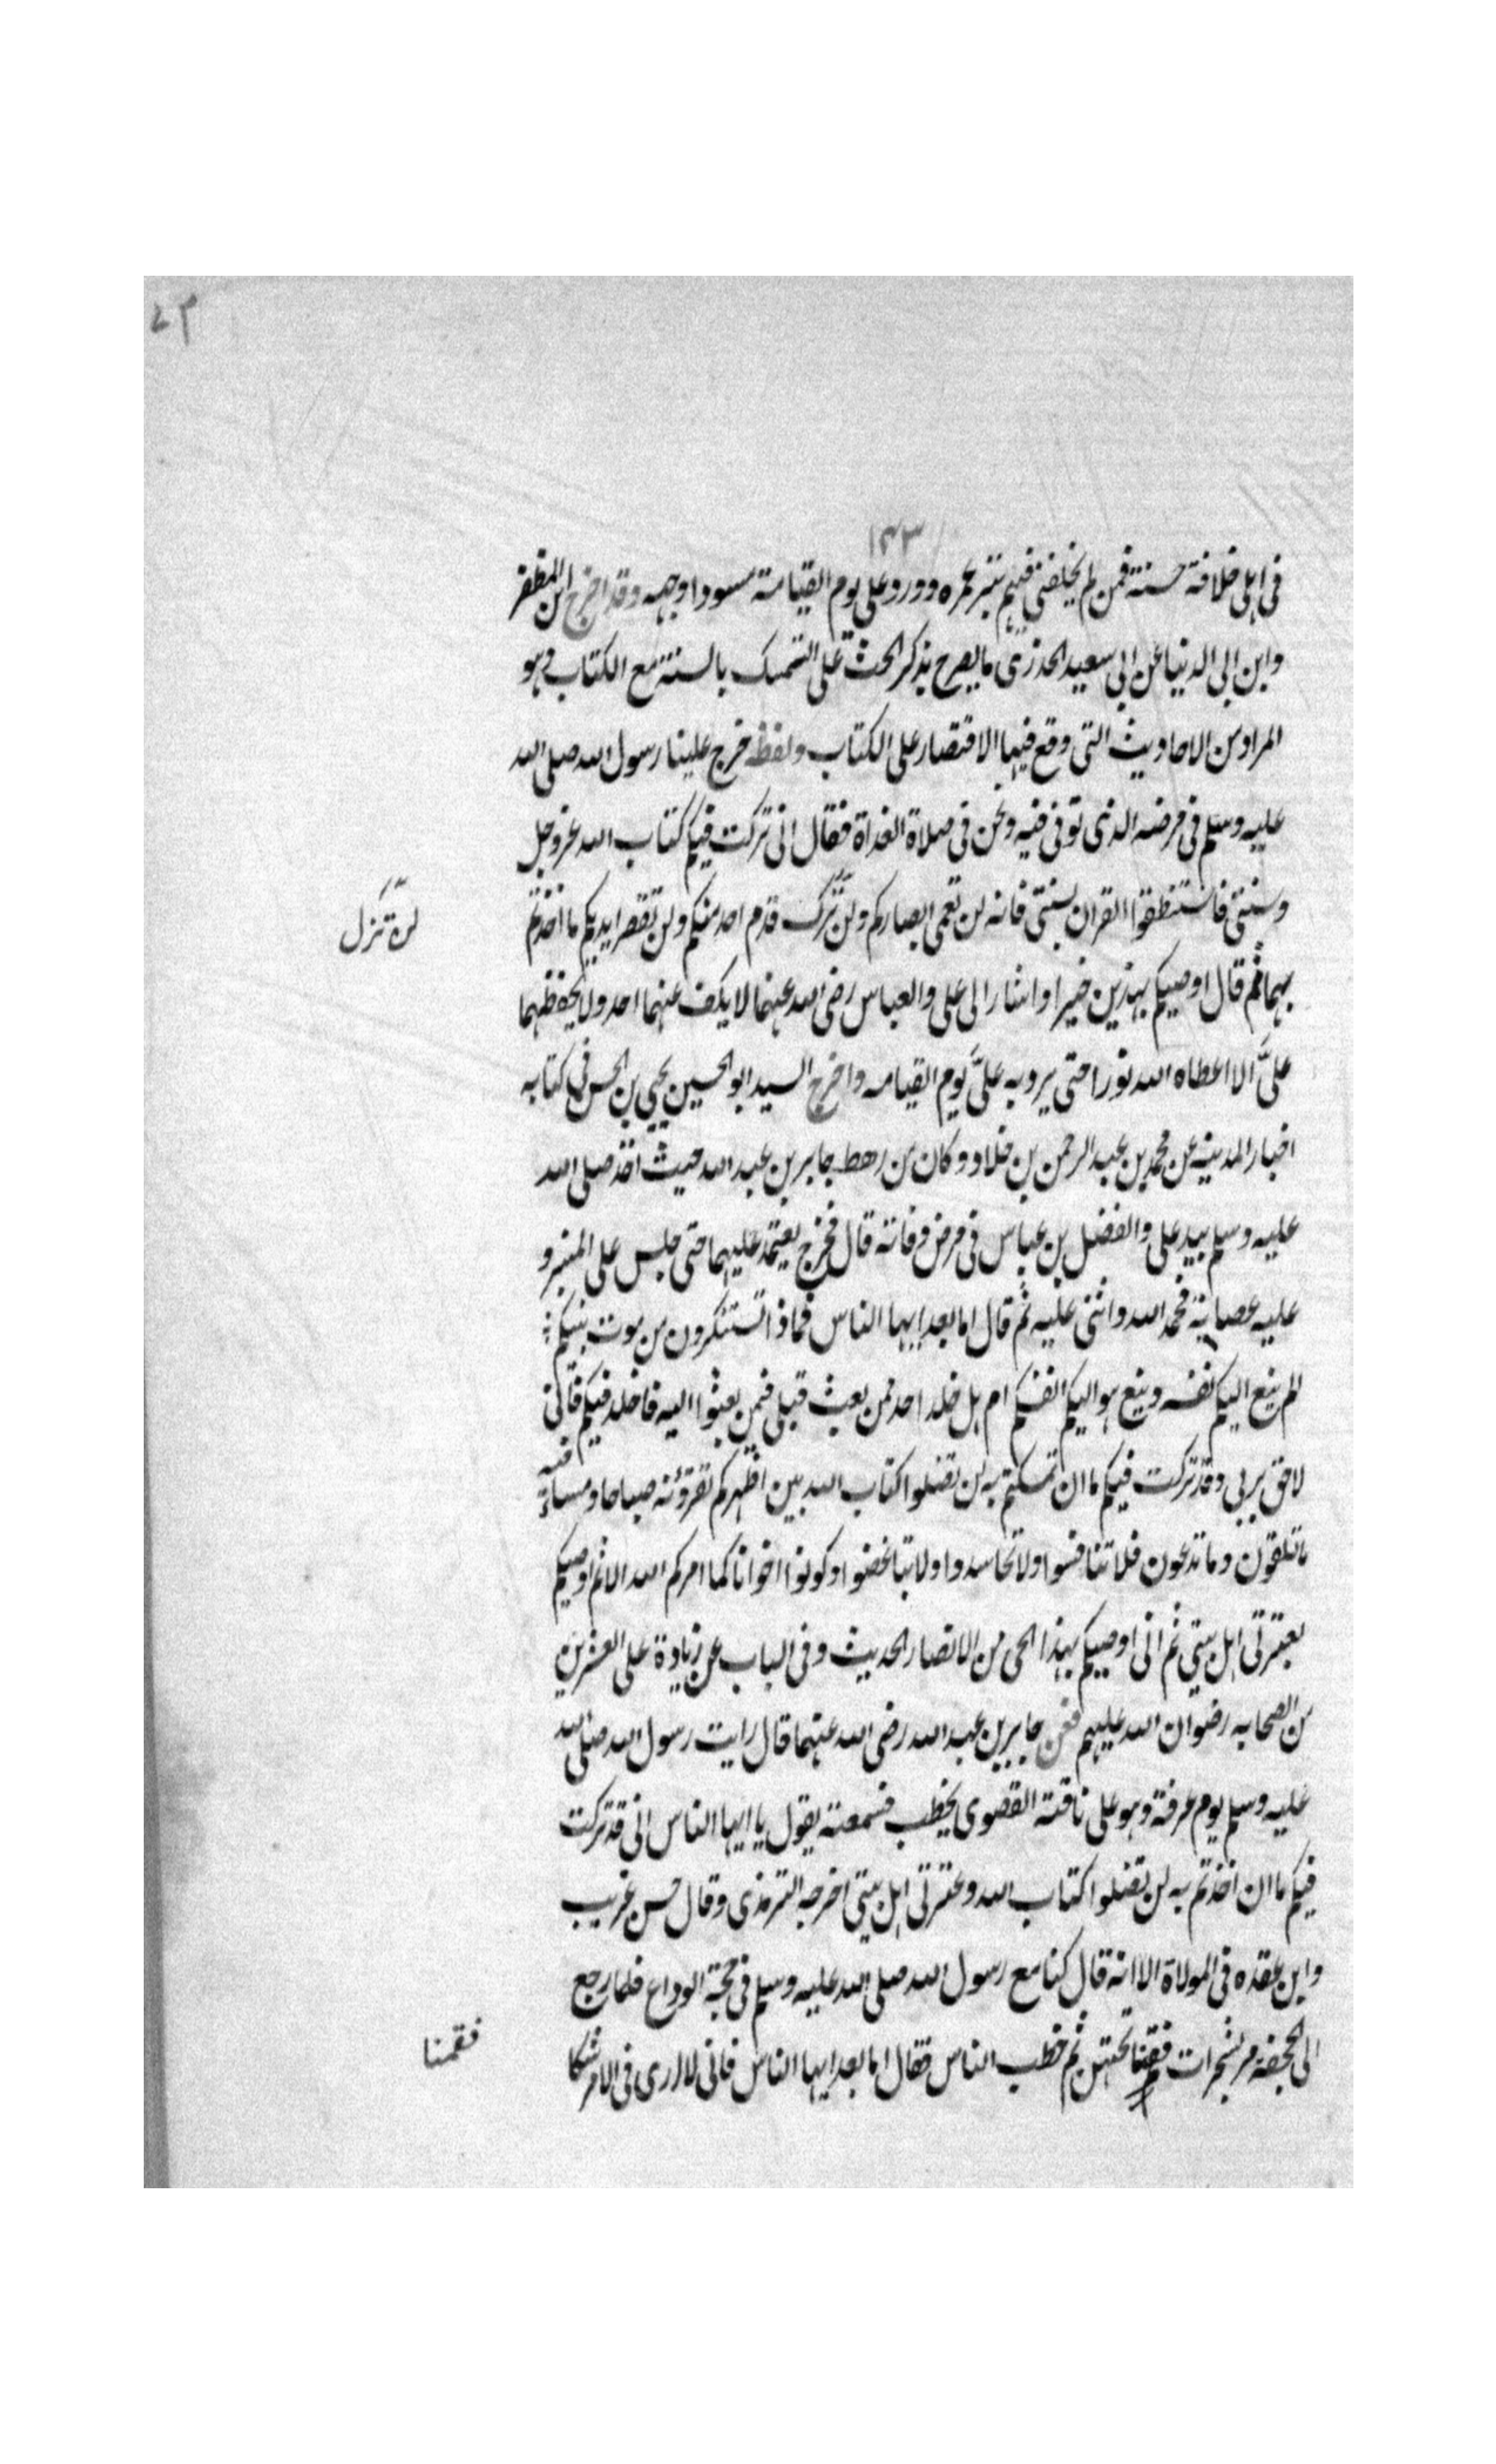 ١٤٣
فى اهلى خلافة حسنة فمن لم يخلفنى فيهم بتر عمره وورد على يوم القيامة مسودا وجهه وقد اخرج ابن المظفر
وابن ابى الدنيا عن ابى سعيد الخدرى ما يصرح بذكر الحث على التمسك بالسنة مع الكتاب وهو
المراد من الاحاديث التى وقع فيها الاقتصار على الكتاب ولفظه خرج علينا رسول الله صلى الله
عليه وسلم فى مرضه الذى توفى فيه ونحن فى صلاة الغداة فقال انى تركت فيكم كتاب الله عز وجل
وسنتى فاستنطقوا القران بسنتى فانه لن تعمى ابصاركم ولن تزل قدم احد منكم ولن تقصر ايديكم ما اخذتم
لن تزل
بهما ثم قال اوصيكم بهذين خيرا واشار الى على والعباس رضى الله عنهما لا يكف عنهما احد ولا يحفظهما
علىَّ الا اعطاه الله نورا حتى يرد به علىَّ يوم القيامه واخرج السيد ابو الحسين يحيى بن الحسن فى كتابه
اخبار المدينه عن محمد بن عبد الرحمن بن خلاد وكان من رهط جابر بن عبد الله حيث اخذ صلى الله
عليه وسلم بيد على والفضل بن عباس فى مرض وفاته قال فخرج يعتمد عليهما حتى جلس على المنبر و
عليه عصابة فحمد الله واثنى عليه ثم قال اما بعد ايها الناس فماذا تستنكرون من موت نبيكم
الم ينع اليكم نفسه وينع هو اليكم انفسكم ام هل خلد احد ممن بعث قبلى فيمن بعثوا اليه فاخلد فيكم فانى
لاحق بربى وقد تركت فيكم ما ان تمسكتم به لن تضلوا كتاب الله بين اظهركم تقرؤنه صباحا ومساء فيه
ما تلقون وما تدعون فلا تنافسوا ولا تحاسدوا ولا تباغضوا وكونوا اخوانا كما امركم الله الا ثم اوصيكم
بعترتى اهل بيتى ثم انى اوصيكم بهذا الحى من الانصار الحديث وفى الباب عن زيادة على العشرين
من الصحابه رضوان الله عليهم فعن جابر بن عبد الله رضى الله عنهما قال رايت رسول الله صلى الله
عليه وسلم يوم عرفة وهو على ناقته القصوى يخطب فسمعته يقول يا ايها الناس انى قد تركت
فيكم ما ان اخذتم به لن تضلوا كتاب الله وعترتى اهل بيتى اخرجه الترمذى وقال حسن غريب
وابن عقده فى المولاة الا انه قال كنا مع رسول الله صلى الله عليه وسلم فى حجة الوداع فلما رجع
الى الجحفة مر بشجرات فقمنا تحتهن ثم خطب الناس فقال اما بعد ايها الناس فانى لا ارى فى الامر
فقمنا